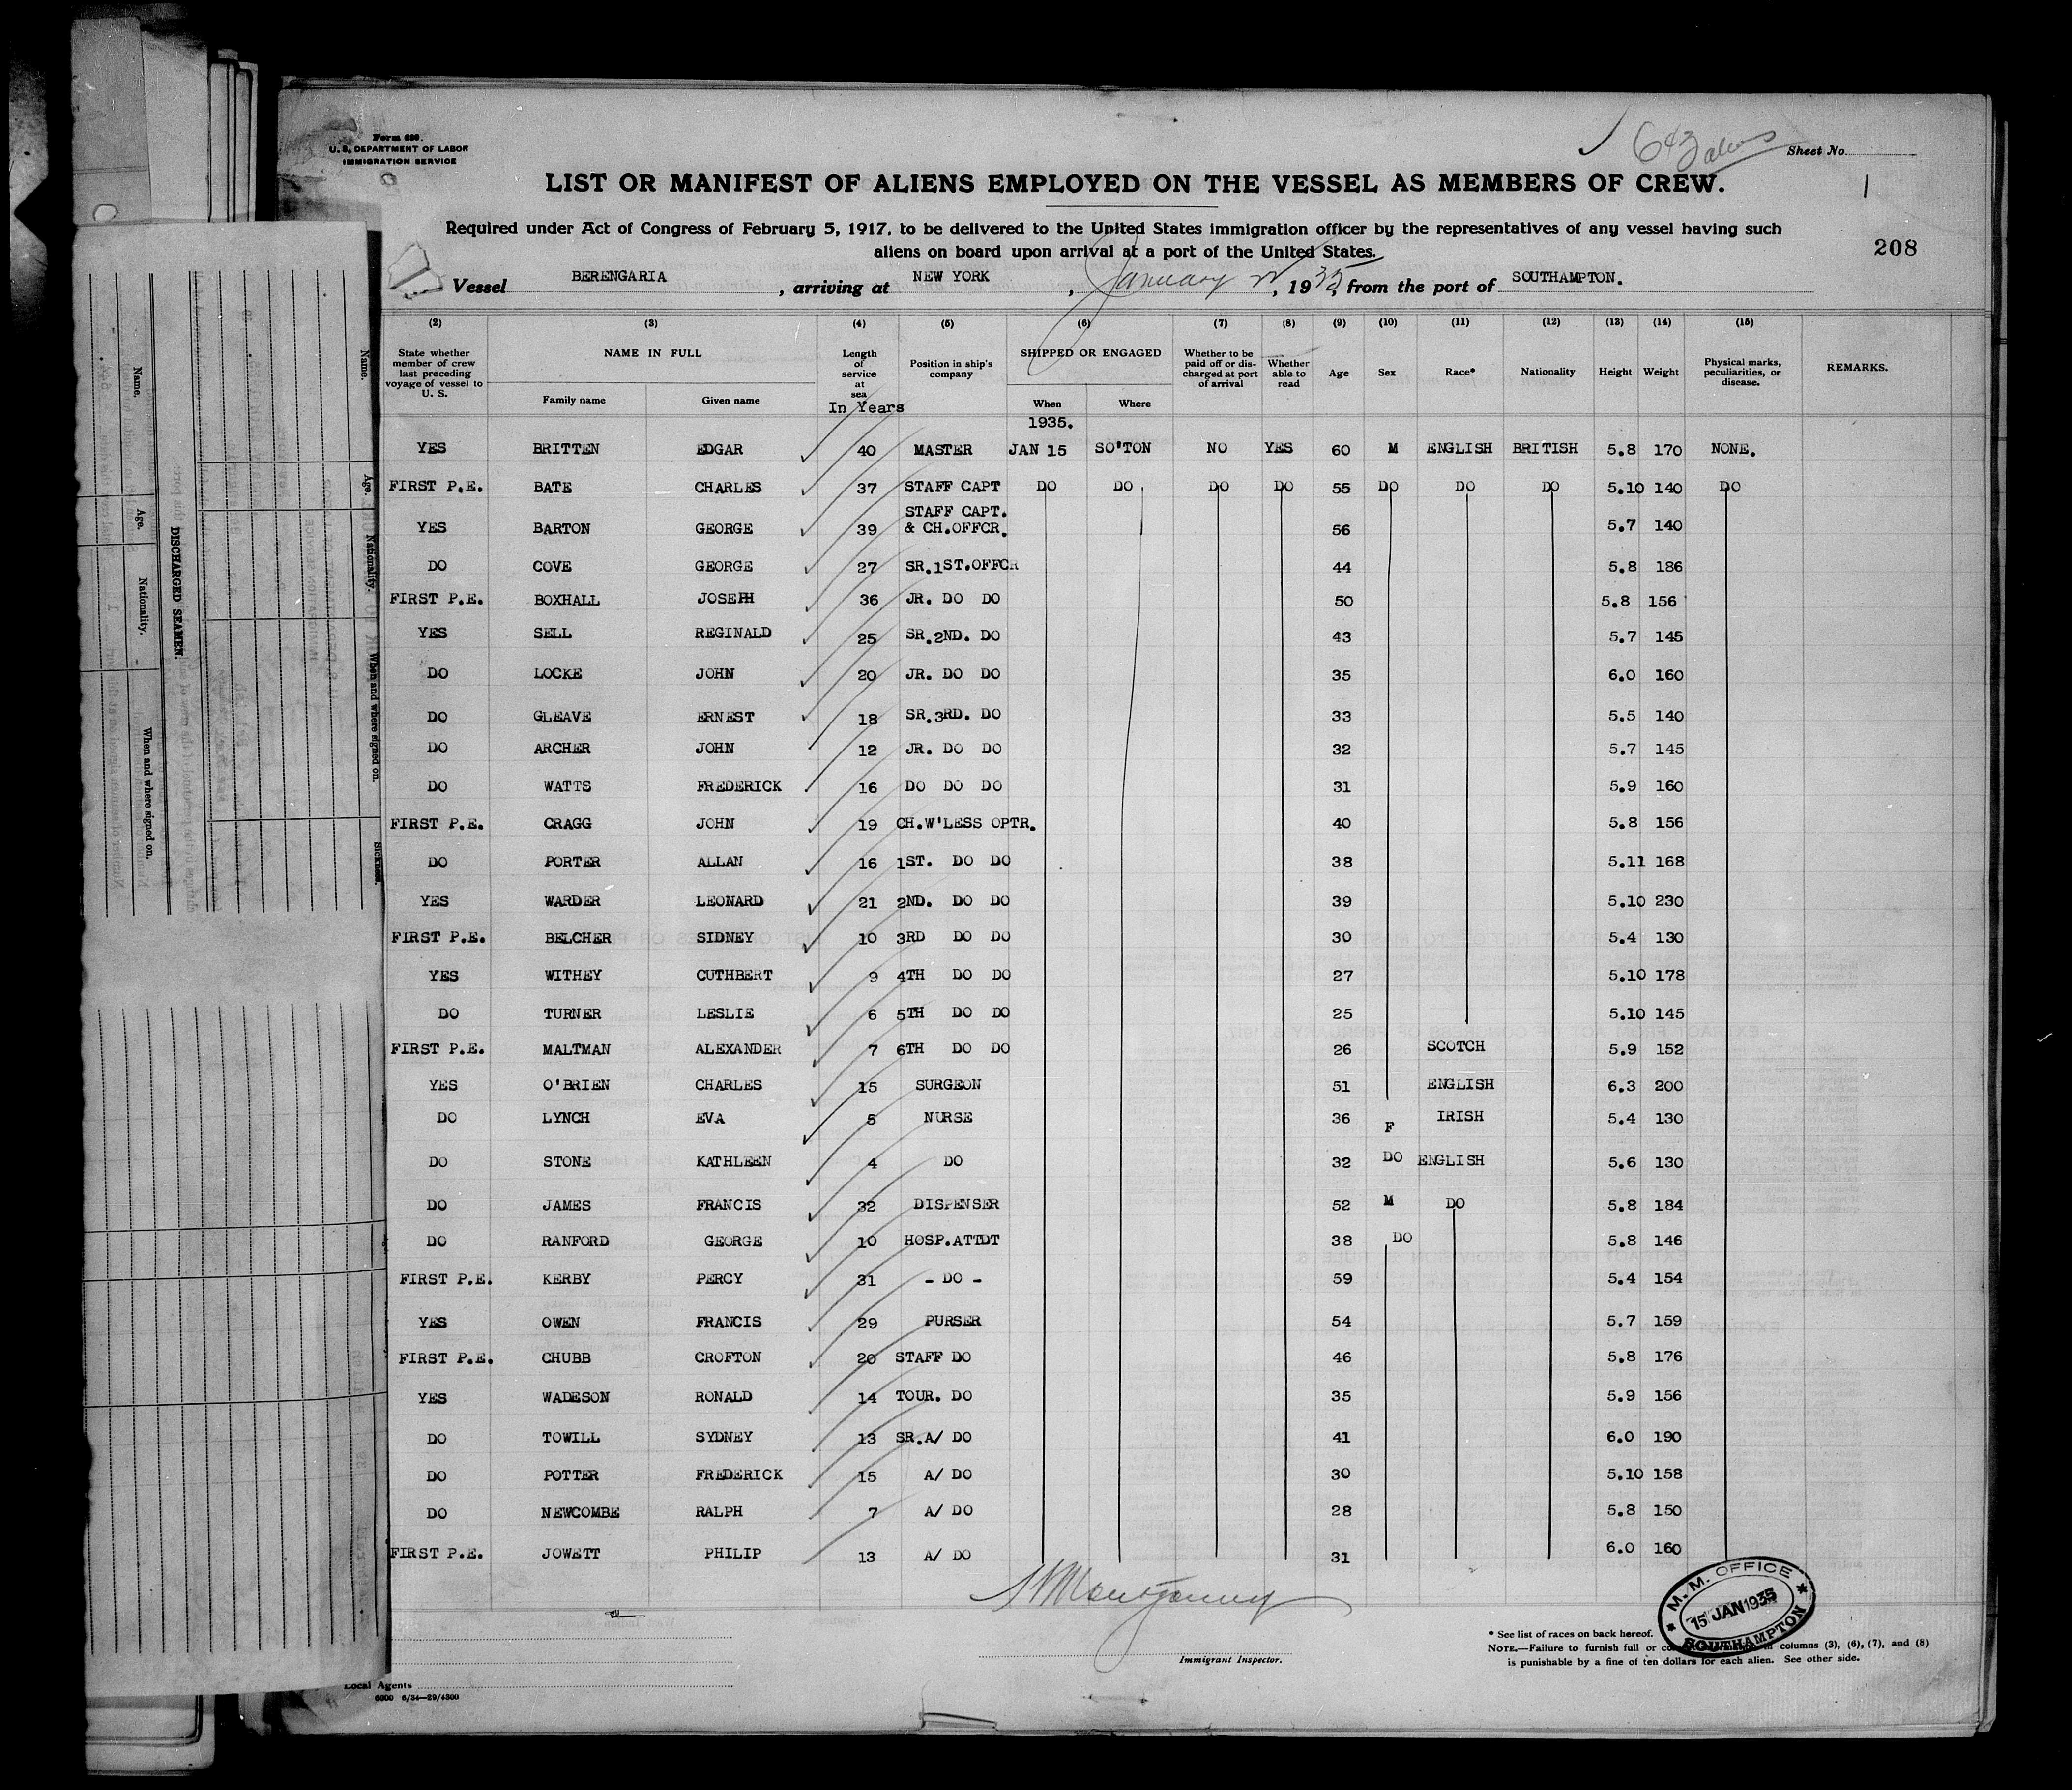 Form 689.
U. S. DEPARTMENT OF LABOR
IMMIGRATION SERVICE
643 aliens
Sheet No.
1
LIST OR MANIFEST OF ALIENS EMPLOYED ON THE VESSEL AS MEMBERS OF CREW.
Required under Act of Congress of February 5, 1917, to be delivered to the United States immigration officer by the representatives of any vessel having such
aliens on board upon arrival at a port of the United States.
208
Vessel BERENGARIA, arriving at NEW YORK, January 22, 1935, from the port of SOUTHAMPTON.
(2) (3) (4) (5) (6) (7) (8) (9) (10) (11) (12) (13) (14) (15)
State whether member of crew last preceding voyage of vessel to U. S. NAME IN FULL Family name Given name Length of service at sea In Years Position in ship's company SHIPPED OR ENGAGED When Where Whether to be paid off or discharged at port of arrival Whether able to read Age Sex Race* Nationality Height Weight Physical marks, peculiarities, or disease. REMARKS.
1935.
YES BRITTEN EDGAR 40 MASTER JAN 15 SO'TON NO YES 60 M ENGLISH BRITISH 5.8 170 NONE.
FIRST P.E. BATE CHARLES 37 STAFF CAPT DO DO DO DO 55 DO DO DO 5.10 140 DO
YES BARTON GEORGE 39 STAFF CAPT. & CH.OFFCR. 56 5.7 140
DO COVE GEORGE 27 SR.1ST.OFFCR 44 5.8 186
FIRST P.E. BOXHALL JOSEPH 36 JR. DO DO 50 5.8 156
YES SELL REGINALD 25 SR.2ND. DO 43 5.7 145
DO LOCKE JOHN 20 JR. DO DO 35 6.0 160
DO GLEAVE ERNEST 18 SR.3RD. DO 33 5.5 140
DO ARCHER JOHN 12 JR. DO DO 32 5.7 145
DO WATTS FREDERICK 16 DO DO DO 31 5.9 160
FIRST P.E. CRAGG JOHN 19 CH.W'LESS OPTR. 40 5.8 156
DO PORTER ALLAN 16 1ST. DO DO 38 5.11 168
YES WARDER LEONARD 21 2ND. DO DO 39 5.10 230
FIRST P.E. BELCHER SIDNEY 10 3RD DO DO 30 5.4 130
YES WITHEY CUTHBERT 9 4TH DO DO 27 5.10 178
DO TURNER LESLIE 6 5TH DO DO 25 5.10 145
FIRST P.E. MALTMAN ALEXANDER 7 6TH DO DO 26 SCOTCH 5.9 152
YES O'BRIEN CHARLES 15 SURGEON 51 ENGLISH 6.3 200
DO LYNCH EVA 5 NURSE 36 F IRISH 5.4 130
DO STONE KATHLEEN 4 DO 32 DO ENGLISH 5.6 130
DO JAMES FRANCIS 32 DISPENSER 52 M DO 5.8 184
DO RANFORD GEORGE 10 HOSP.ATTDT 38 DO 5.8 146
FIRST P.E. KERBY PERCY 31 - DO - 59 5.4 154
YES OWEN FRANCIS 29 PURSER 54 5.7 159
FIRST P.E. CHUBB CROFTON 20 STAFF DO 46 5.8 176
YES WADESON RONALD 14 TOUR. DO 35 5.9 156
DO TOWILL SYDNEY 13 SR.A/ DO 41 6.0 190
DO POTTER FREDERICK 15 A/ DO 30 5.10 158
DO NEWCOMBE RALPH 7 A/ DO 28 5.8 150
FIRST P.E. JOWETT PHILIP 13 A/ DO 31 6.0 160
Montgomery
Immigrant Inspector.
M. M. OFFICE
15 JAN 1935
SOUTHAMPTON
* See list of races on back hereof.
NOTE.—Failure to furnish full or columns (3), (6), (7), and (8)
is punishable by a fine of ten dollars for each alien. See other side.
Local Agents
6000 6/34—29/4300
Name. Age. Nationality. When and where signed on.
DISCHARGED SEAMEN.
Name. Age. Nationality. When and where signed on.